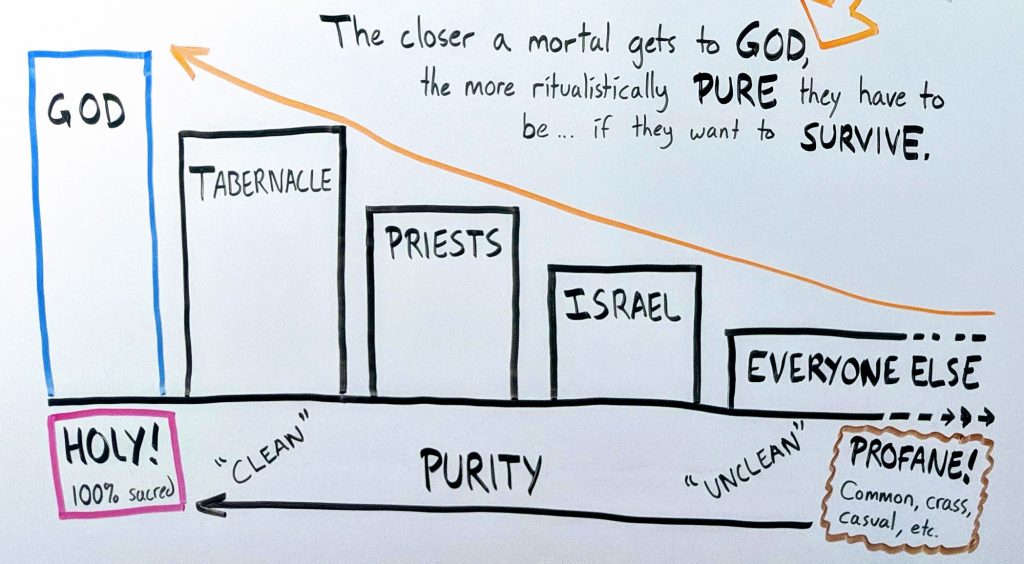 The closer a mortal gets to GOD,
the more ritualistically PURE they have to
be... if they want to SURVIVE.
GOD
TABERNACLE
PRIESTS
ISRAEL
EVERYONE ELSE
HOLY!
100% sacred
"CLEAN"
PURITY
"UNCLEAN"
PROFANE!
Common, crass,
casual, etc.